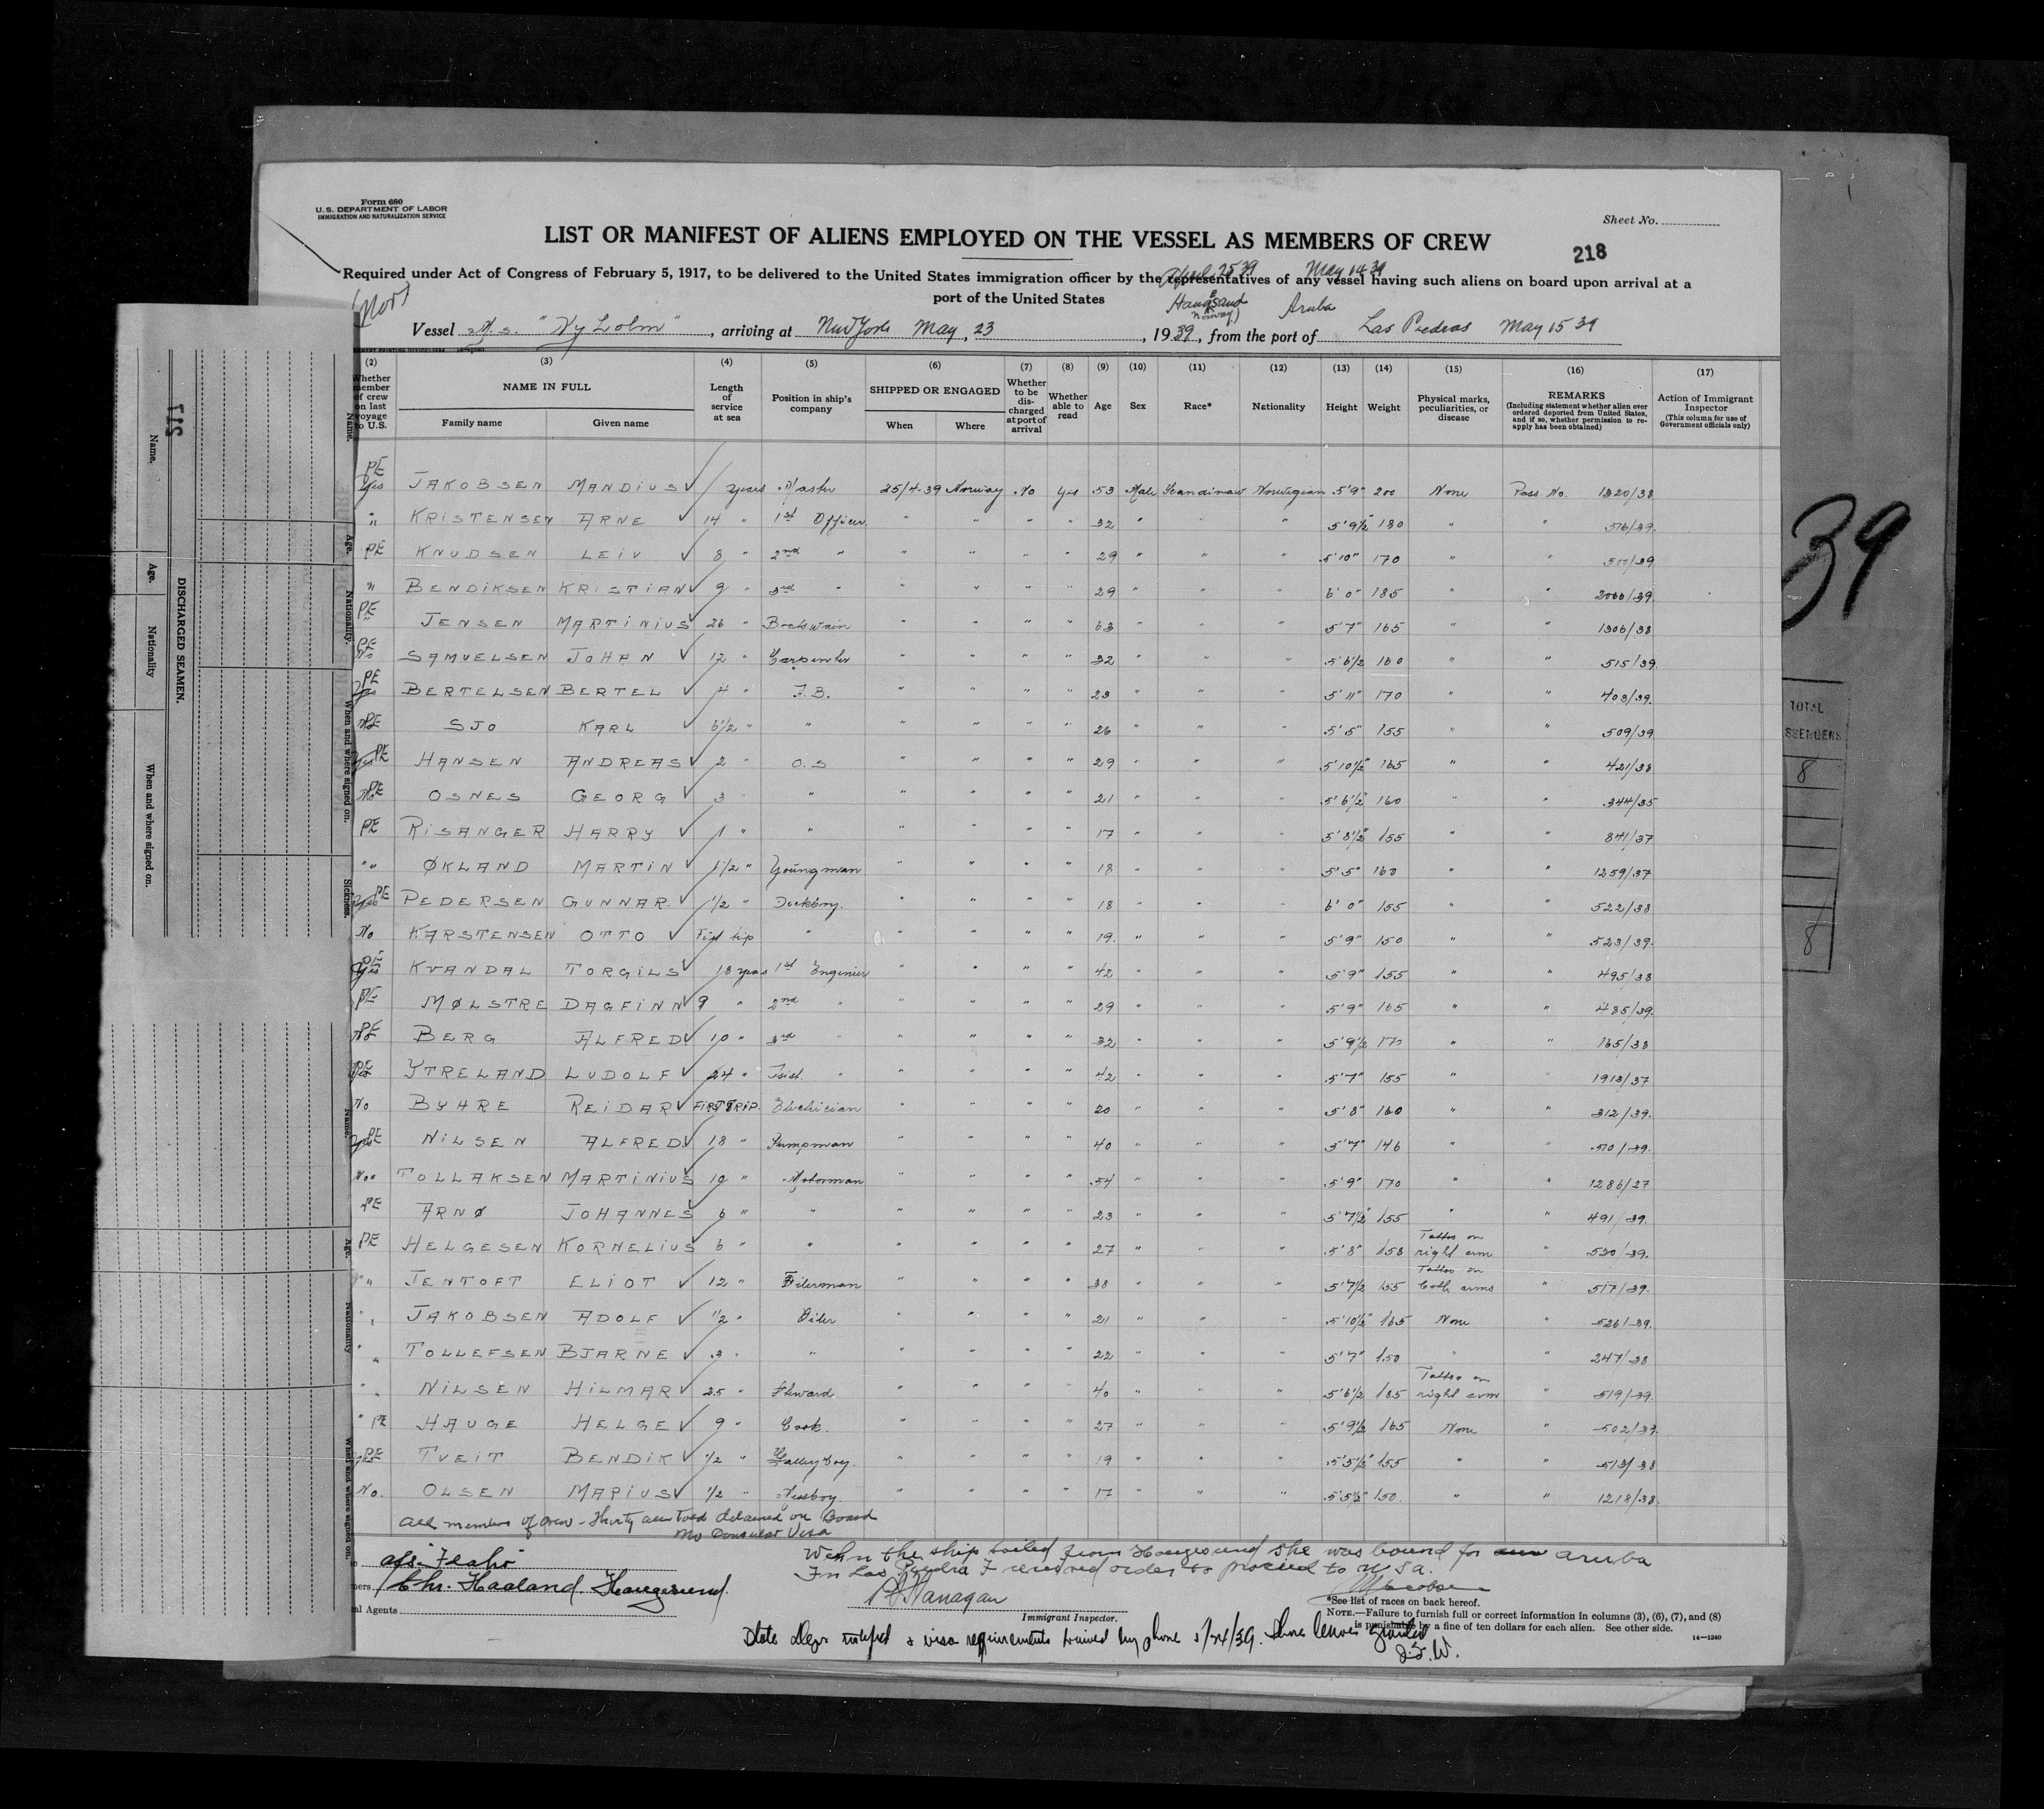 Form 680
U.S. DEPARTMENT OF LABOR
IMMIGRATION AND NATURALIZATION SERVICE
Sheet No.
LIST OR MANIFEST OF ALIENS EMPLOYED ON THE VESSEL AS MEMBERS OF CREW
218
Required under Act of Congress of February 5, 1917, to be delivered to the United States immigration officer by the representatives of any vessel having such aliens on board upon arrival at a
port of the United States
April 25 39 May 14 39
(Nor)
Norway) Aruba
Vessel , arriving at New York May, 23, 1939, from the port of Las Piedras May 15 39
(2) (3) (4) (5) (6) (7) (8) (9) (10) (11) (12) (13) (14) (15) (16) (17)
Whether member of crew on last voyage to U.S.
NAME IN FULL
Family name Given name
Length of service at sea
Position in ship's company
SHIPPED OR ENGAGED
When Where
Whether to be discharged at port of arrival
Whether able to read
Age
Sex
Race*
Nationality
Height
Weight
Physical marks, peculiarities, or disease
REMARKS
(Including statement whether alien ever ordered deported from United States, and if so, whether permission to reapply has been obtained)
Action of Immigrant Inspector
(This column for use of Government officials only)
PE Yes JAKOBSEN MANDIUS years Master 25/4-39 Norway No Yes 53 Male Scandinav Norwegian 5'9" 200 None Pass No. 1320/38
" KRISTENSEN ARNE 14 " 1st Officer " " " " 32 " " " 5'9½" 180 " " 516/39.
PE KNUDSEN LEIV 8 " 2nd " " " " " 29 " " " 5'10" 170 " " 500/39
" BENDIKSEN KRISTIAN 9 " 3rd " " " " " 29 " " " 6'0" 185 " " 2000/39.
PE JENSEN MARTINIUS 26 " Boatswain " " " " 63 " " " 5'7" 165 " " 1306/38
PE No SAMUELSEN JOHAN 12 " Carpenter " " " " 32 " " " 5'6½ 160 " " 515/39.
PE Yes BERTELSEN BERTEL 4 " " " " " 23 " " " 5'11" 170 " " 403/39.
PE SJO KARL 6½ " " " " " " 26 " " " 5'5" 155 " " 509/39
PE HANSEN ANDREAS 2 " O.S " " " " 29 " " " 5'10½" 165 " " 421/38
PE OSNES GEORG 3 " " " " " " 21 " " " 5'6½" 160 " " 344/35
PE RISANGER HARRY 1 " " " " " " 17 " " " 5'8½" 155 " " 841/37
" " ØKLAND MARTIN 1½ " Youngman " " " " 18 " " " 5'5" 160 " " 1259/37
PE PEDERSEN GUNNAR. ½ " Deckboy. " " " " 18 " " " 6'0" 155 " " 522/38
No KARSTENSEN OTTO First trip " " " " " 19. " " " 5'9" 150 " " 523/39.
PE Yes KVANDAL TORGILS 18 years 1st Enginier " " " " 42 " " " 5'9" 155 " " 495/38
PE MØLSTRE DAGFINN 9 " 2nd " " " " " 29 " " " 5'9" 165 " " 485/39.
PE BERG ALFRED 10 " 3rd " " " " " 32 " " " 5'9½ 170 " " 165/38
PE YTRELAND LUDOLF 24 " " " " " " 42 " " " 5'7" 155 " 1913/37
No BYHRE REIDAR FIRST TRIP. Electrician " " " " 20 " " " 5'8" 160 " " 312/39.
PE NILSEN ALFRED 18 " Pumpman " " " " 40 " " " 5'7" 146 " " 510/39.
No TOLLAKSEN MARTINIUS 10 " Motorman " " " " 54 " " " 5'9" 170 " " 1286/27
PE ARNØ JOHANNES 6 " " " " " " 23 " " " 5'7½" 155 " " 491/39.
PE HELGESEN KORNELIUS 6 " " " " " " 27 " " " 5'8" 158 Tattoo on right arm " 520/39.
" JENTOFT ELIOT 12 " " " " " 38 " " " 5'7½ 155 Tattoo on both arms " 517/39.
" JAKOBSEN ADOLF ½ " Oiler " " " " 21 " " " 5'10½" 165 None " 526/39.
" TOLLEFSEN BJARNE 3 " " " " " " 22 " " " 5'7" 150 " " 247/38
" NILSEN HILMAR 25 " Steward. " " " " 40 " " " 5'6½ 185 Tattoo on right arm " 519/39.
" PE HAUGE HELGE 9 " Cook. " " " " 27 " " " 5'9½ 165 None " 502/39.
PE TVEIT BENDIK ½ " Galley boy. " " " " 19 " " " 5'5½" 155 " " 513/38
No. OLSEN MARIUS ½ " Messboy. " " " " 17 " " " 5'5½" 150. " " 1218/38.
All members of crew - Thirty all told detained on Board
No Consular Visa
Chr. Haaland Haugesund.
al Agents
When the ship sailed from Haugesund she was bound for Aruba
In Las Piedra I received order to proceed to USA.
Immigrant Inspector.
*See list of races on back hereof.
NOTE.—Failure to furnish full or correct information in columns (3), (6), (7), and (8)
is punishable by a fine of ten dollars for each alien. See other side.
14—1240
State Dept notified & visa requirements waived by phone 5/24/39. Shore leave granted
J.S.W.
217
DISCHARGED SEAMEN.
Name. Age. Nationality When and where signed on.
Name. Age. Nationality. When and where signed on. Sickness.
Name. Age. Nationality When and where signed on.
39
TOTAL
8
8